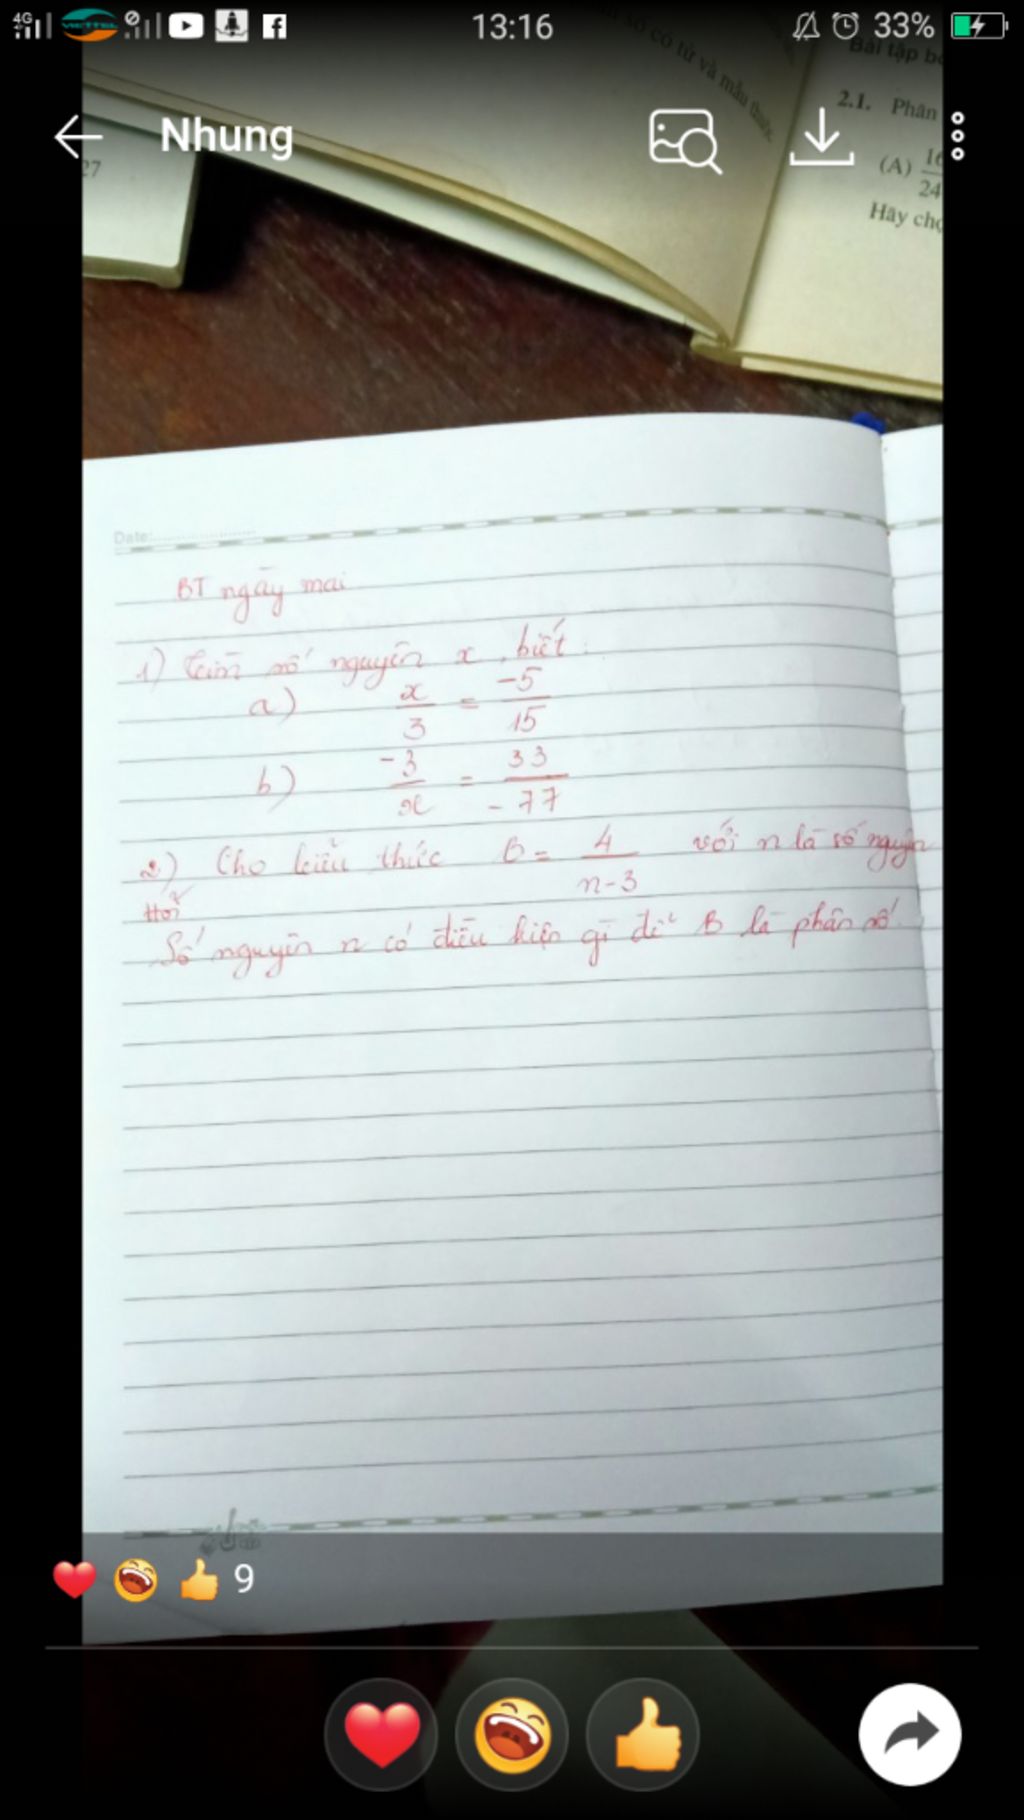 4G
VIETTEL
13:16
33%
Nhung
số có tử và mẫu thuộc
Bài tập
2.1. Phân
(A) 16/24
Hãy chọ
27
Date:
BT ngày mai
1) Tìm số nguyên x, biết:
a) x/3 = -5/15
b) -3/x = 33/-77
2) Cho biểu thức B = 4/n-3 với n là số nguyên
Hỏi
Số nguyên n có điều kiện gì để B là phân số.
9